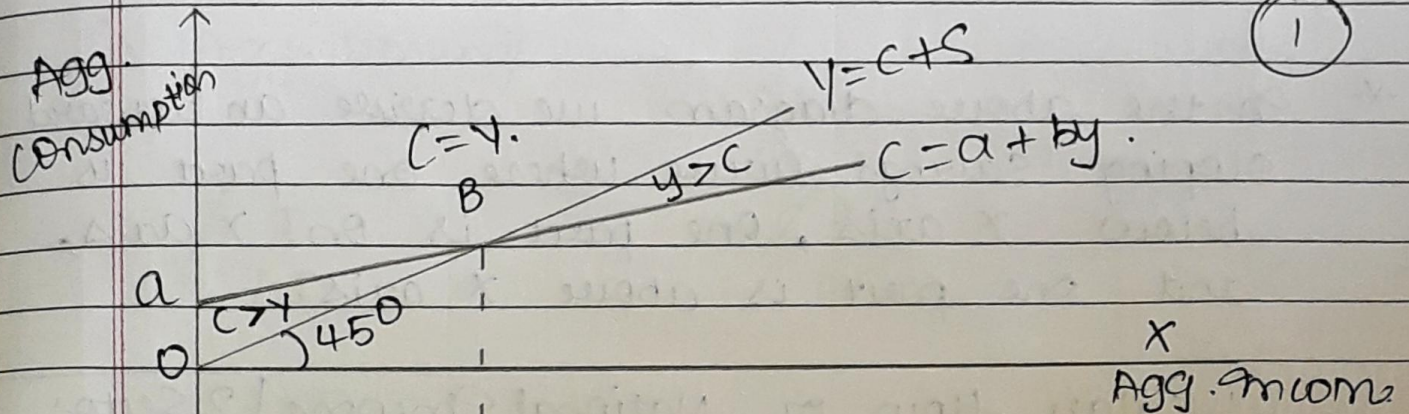 1
Agg.
Consumption
Y=C+S
C=Y.
C=a+by.
y>C
B
a
C>Y
45°
O
X
Agg. Incom